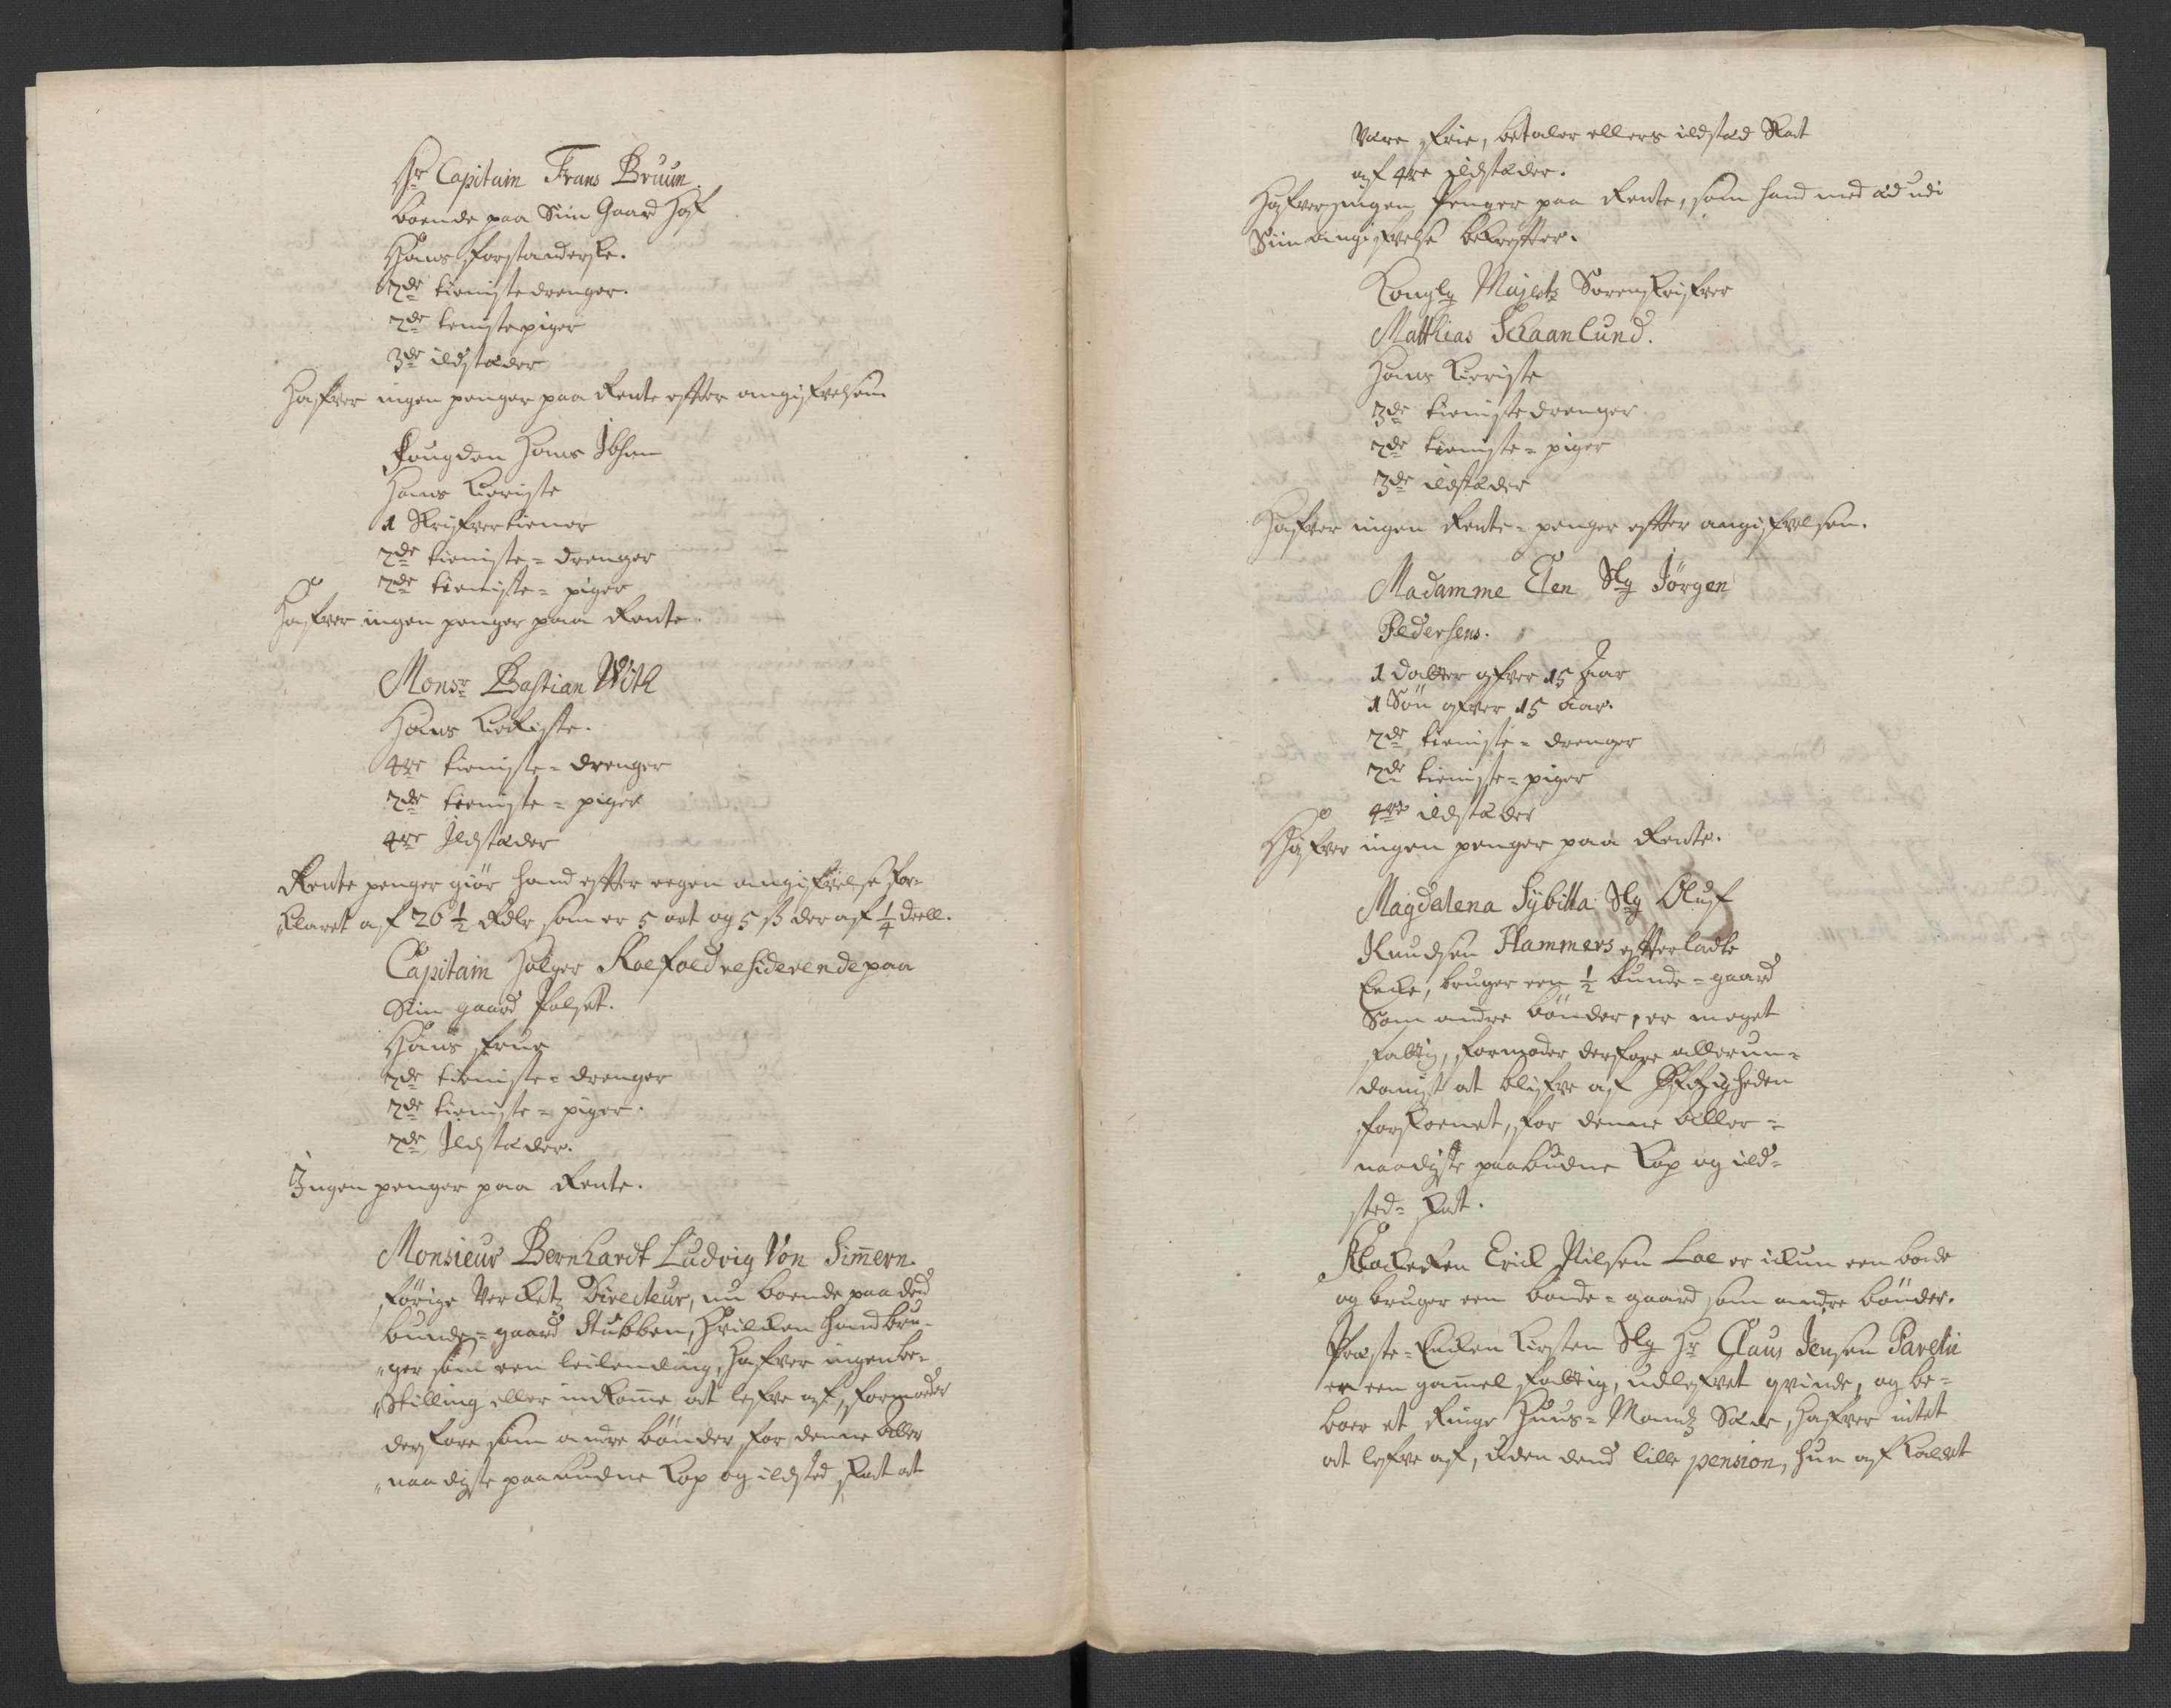 Hr Capitain Frans Bruun.
boende paa Siin Gaard Hof
Hans forstanderske.
2de tienistedrenger.
2de tienistepiger
3de ildstæder
Hafver ingen penger paa Rente efter angifvelsen
Fougden Hans
Hans Kieriste
1 Skrifvertiener
2de tieniste= drenger
2de tieniste= piger
Hafver ingen penger paa Rente.
Monsr Bastian With
Hans Kieriste.
4re tieniste= drenger
2de tieniste= piger
4re Ildstæder
Rente penger giör hand efter eegen angifvelse for-
klaret af 26 1/2 Rdlr som er 5 ort og 5 ß der af 1/4 deell.
Capitain Holger Roefoed residerende paa
Siin gaard Falset.
Hans frue
2de tieniste= drenger
2de tieniste= piger.
2de Ildstæder.
Ingen penger paa Rente.
Monsieur Bernhardt Ludvig Von Sim̄ern.
förige Verketz Directeur, nu boende paa dend
bunde=gaard Stubben, hvilken hand bru-
"ger som een leilending, hafver ingen be-
"stilling eller indkom̄e at lefve af, formoder
derfore som andre bönder for denne aller
"naadigste paabudne Kop og ildsted skat at
være frie, betaler ellers ildsted Skat
af 4re ildstæder.
Hafver ingen Penger paa Rente, som hand med æd udi
Siin angifvelse bekrefter.
Kongl Majestz Sorenskrifver
Matthias Schaanlund.
Hans Kieriste
3de tienistedrenger
2de tieniste= piger
3de ildstæder
Hafver ingen Rente= penger efter angifvelsen.
Madamme Elen Slg Jörgen
Pedersens.
1 datter ofver 15 Aar
1 Sön ofver 15 aar.
2de tieniste= drenger
2de tieniste= piger
4re ildstæder
Hafver ingen penger paa Rente.
Magdalena Sybilla Slg Oluf
Knudsen Hammers efterladte
Encke, bruger een 1/2 bunde= gaard
Som andre bönder, er meget
fattig, formoder derfore allerun=
danigst at blifve af Øfrigheden
forskoenet, for denne aller=
naadigste paabudne Kop og ild=
sted= skat.
Klockeren Erick Nilsen Loe er ickun een bonde
og bruger een bonde= gaard som andre bönder.
Præste= Encken Kirsten Slg Hr Claus Jensen Parelii
er een gam̄el fattig, udlefvet qvinde, og be=
boer et Ringe Huus= Mandz Sæde, hafver intet
at lefve af, uden dend lille pension, hun af Kaldet